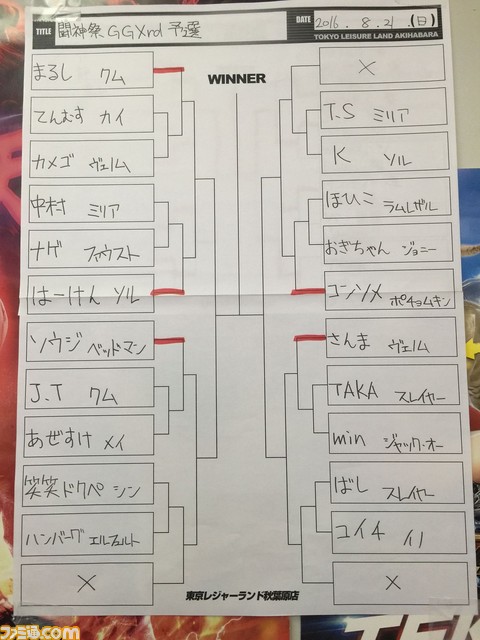 TITLE 闘神祭 GGXrd 予選
DATE 2016.8.21.(日)
TOKYO LEISURE LAND AKIHABARA
WINNER
まるし クム
てんむす カイ
カメゴ ヴェノム
中村 ミリア
ナゲ ファウスト
はーけん ソル
ソウジ ベッドマン
J.T クム
あぜすけ メイ
笑笑ドクペ シン
ハンバーグ エルフェルト
×
×
T.S ミリア
K ソル
ほひこ ラムレザル
おぎちゃん ジョニー
コンソメ ポチョムキン
さんま ヴェノム
TAKA スレイヤー
min ジャック・オー
ばし スレイヤー
ユイチ イノ
×
東京レジャーランド秋葉原店
ファミ通.com